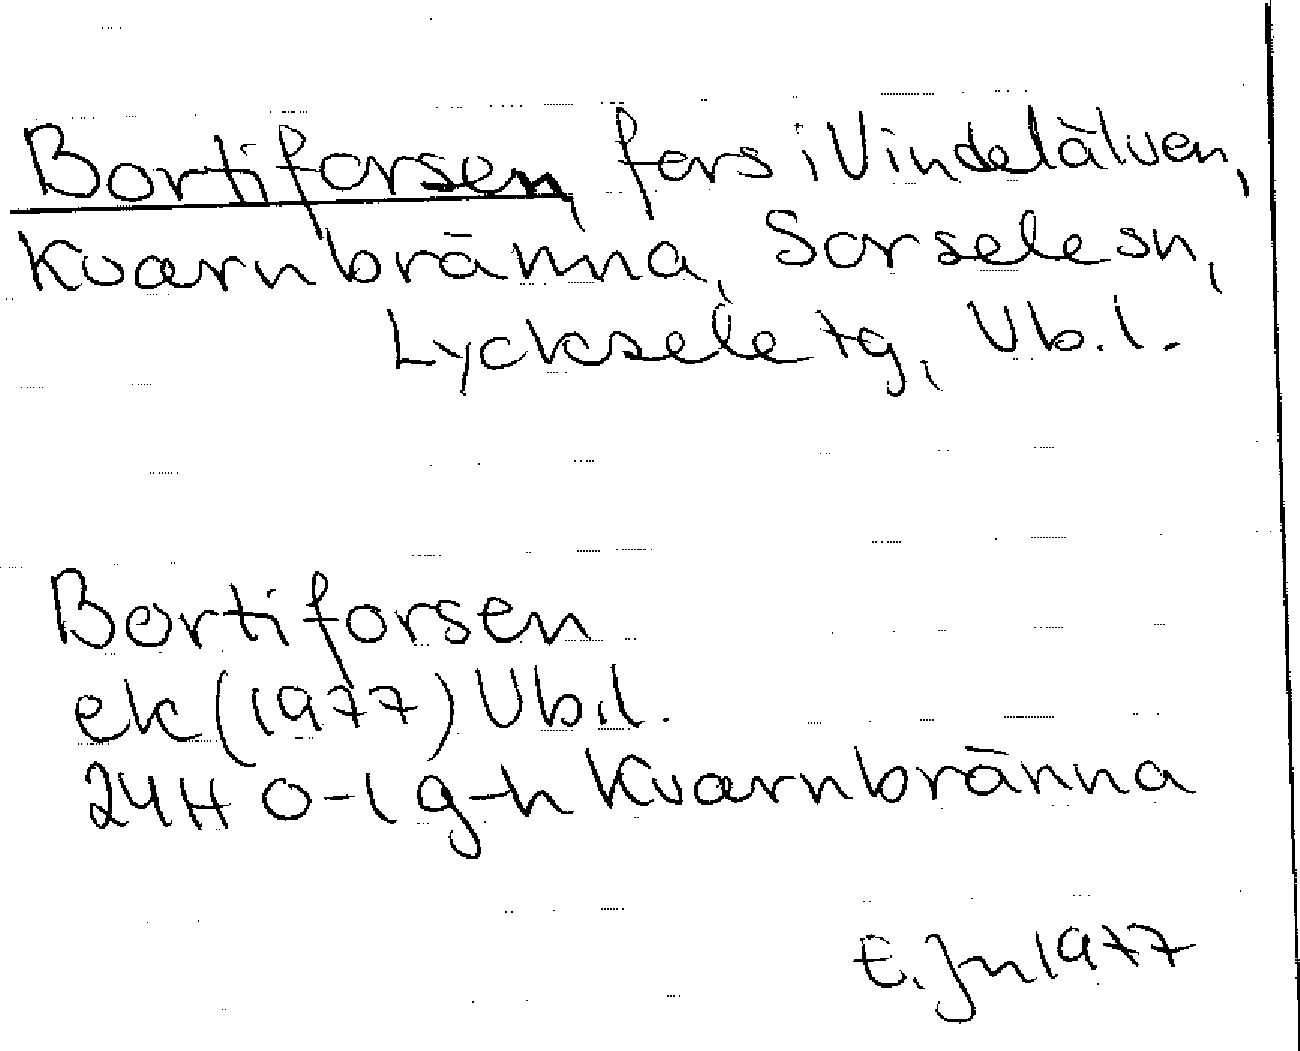 Bortiforsen, fors i Vindelälven,
Kvarnbränna, Sorsele sn,
Lycksele tg, Vb.l.
Bortiforsen
ek (1977) Vb.l.
24H 0-1 g-h Kvarnbränna
E. Jn 1977